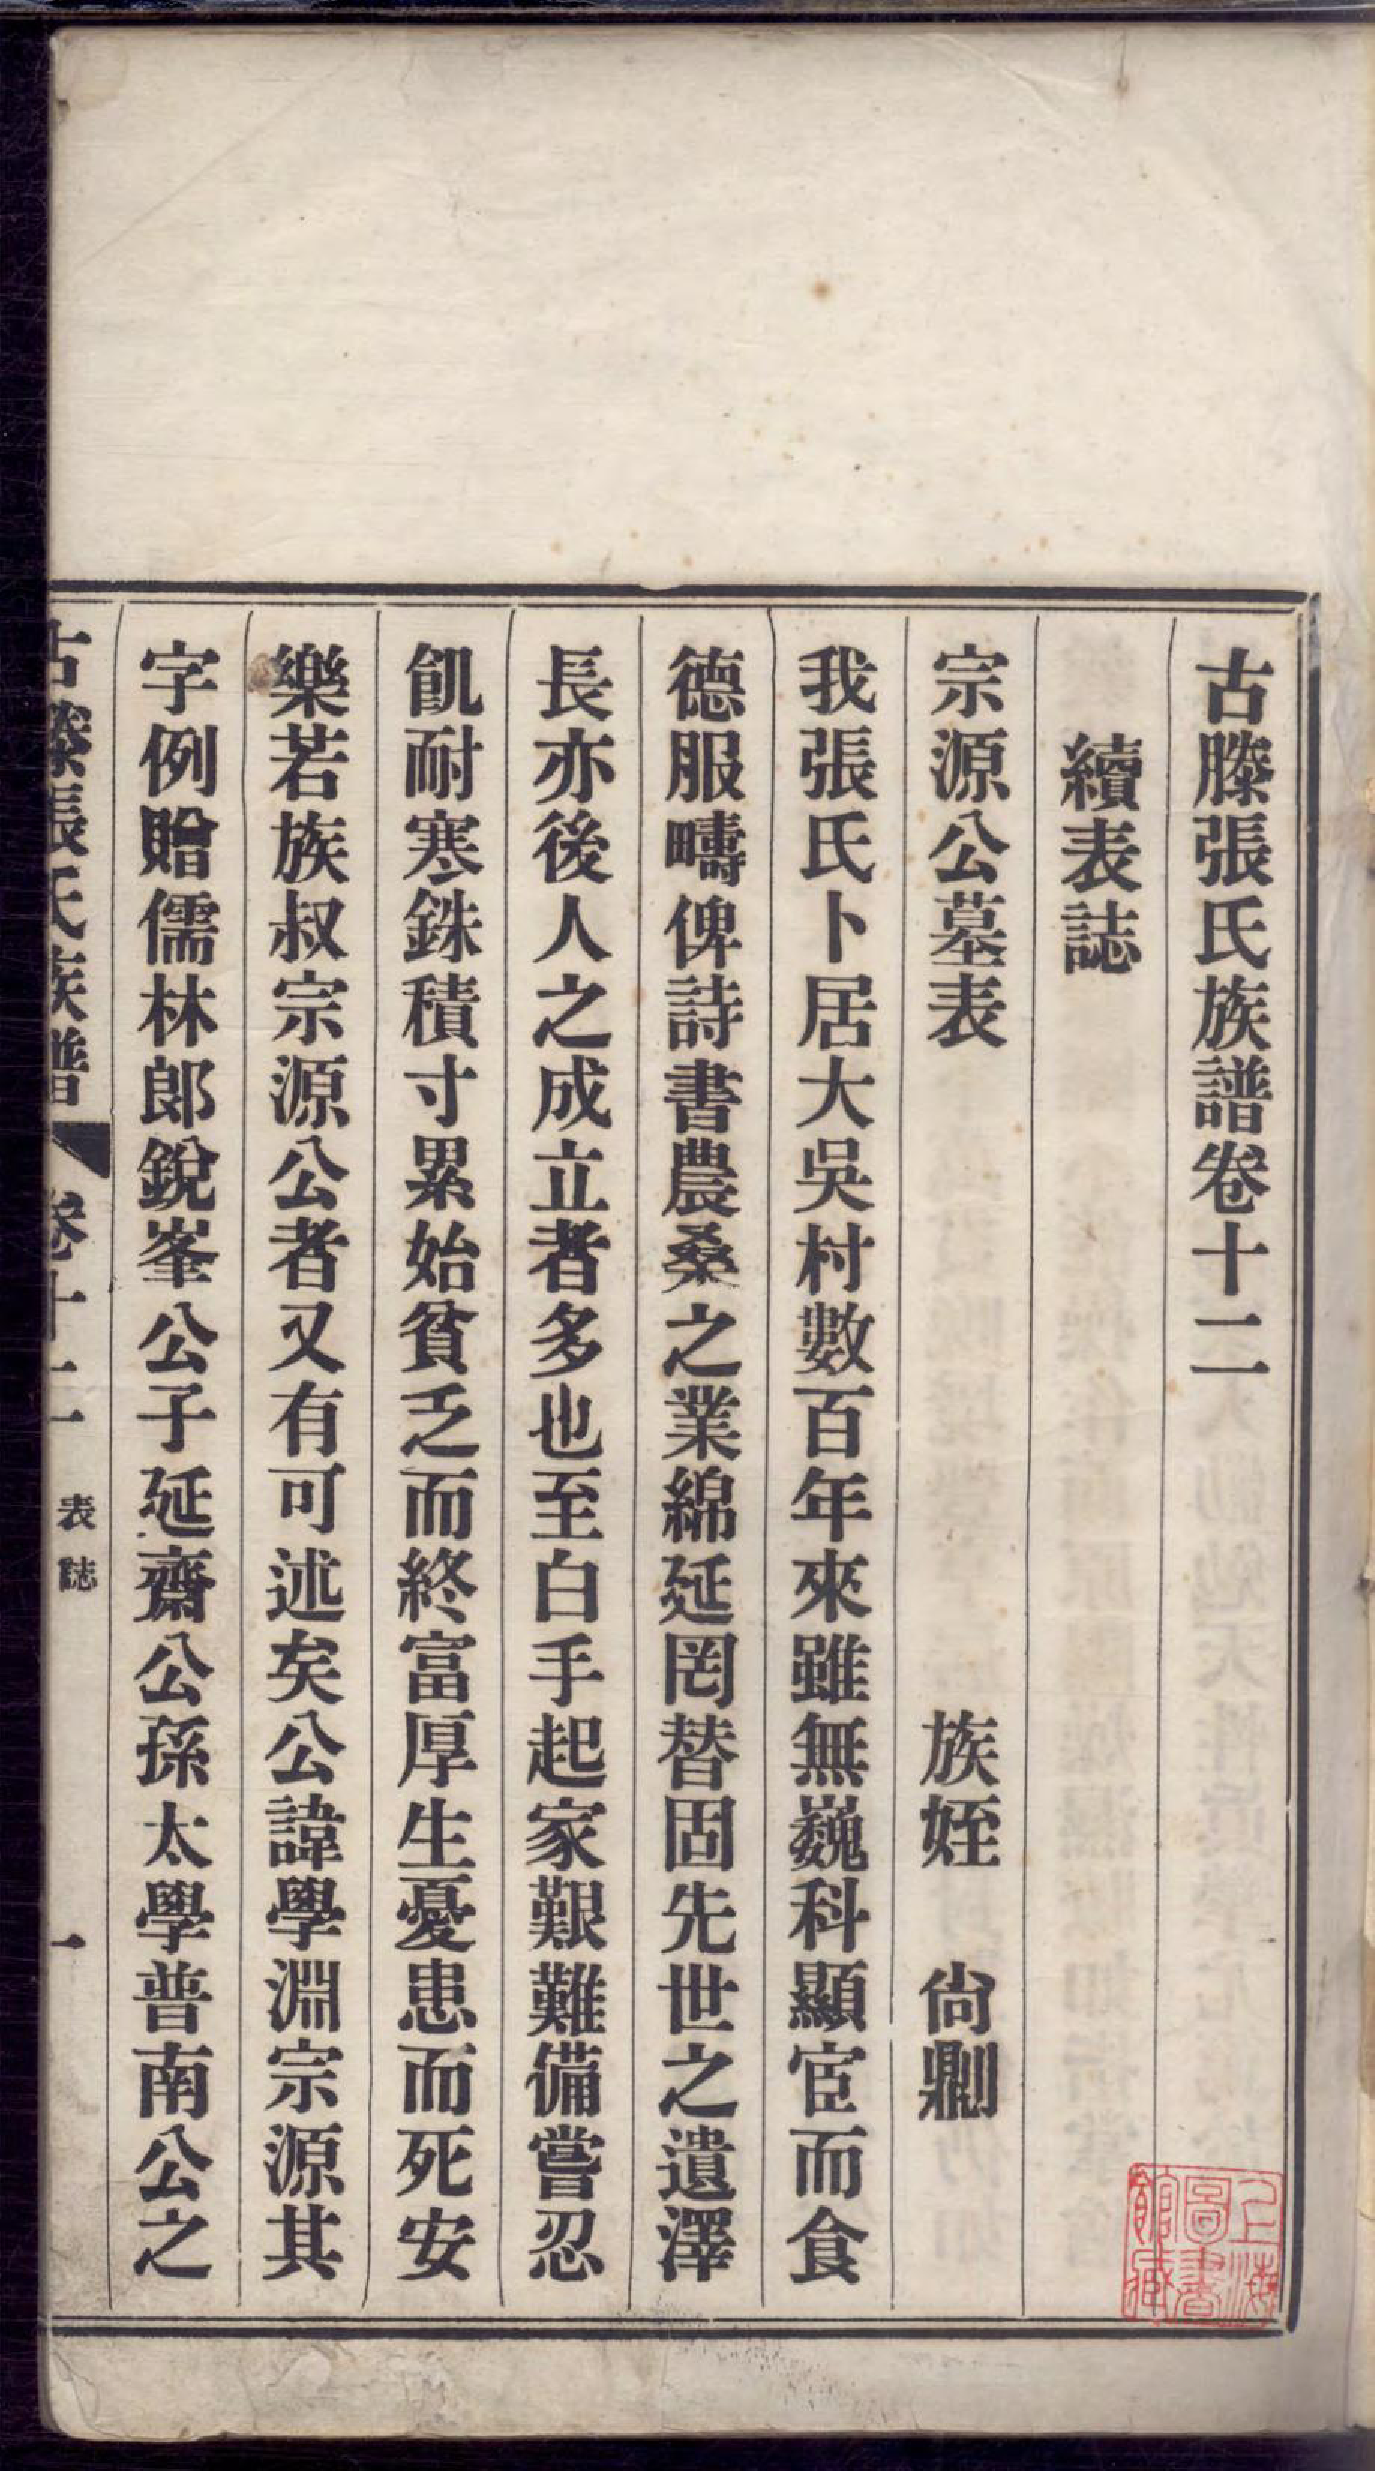 古滕張氏族譜卷十二
續表誌
宗源公墓表 族姪 尙鼎
我張氏卜居大吳村數百年來雖無巍科顯宦而食
德服疇俾詩書農桑之業綿延罔替固先世之遺澤
長亦後人之成立者多也至白手起家艱難備嘗忍
飢耐寒銖積寸累始貧乏而終富厚生憂患而死安
樂若族叔宗源公者又有可述矣公諱學淵宗源其
字例贈儒林郎銳峯公子延齋公孫太學普南公之
古滕張氏族譜 卷十二 表誌 一
上海圖書館藏